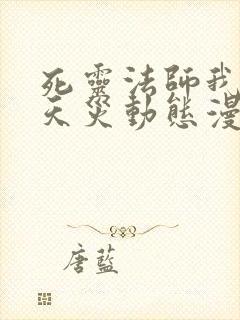 死靈法師我
天災動態漫
唐藍